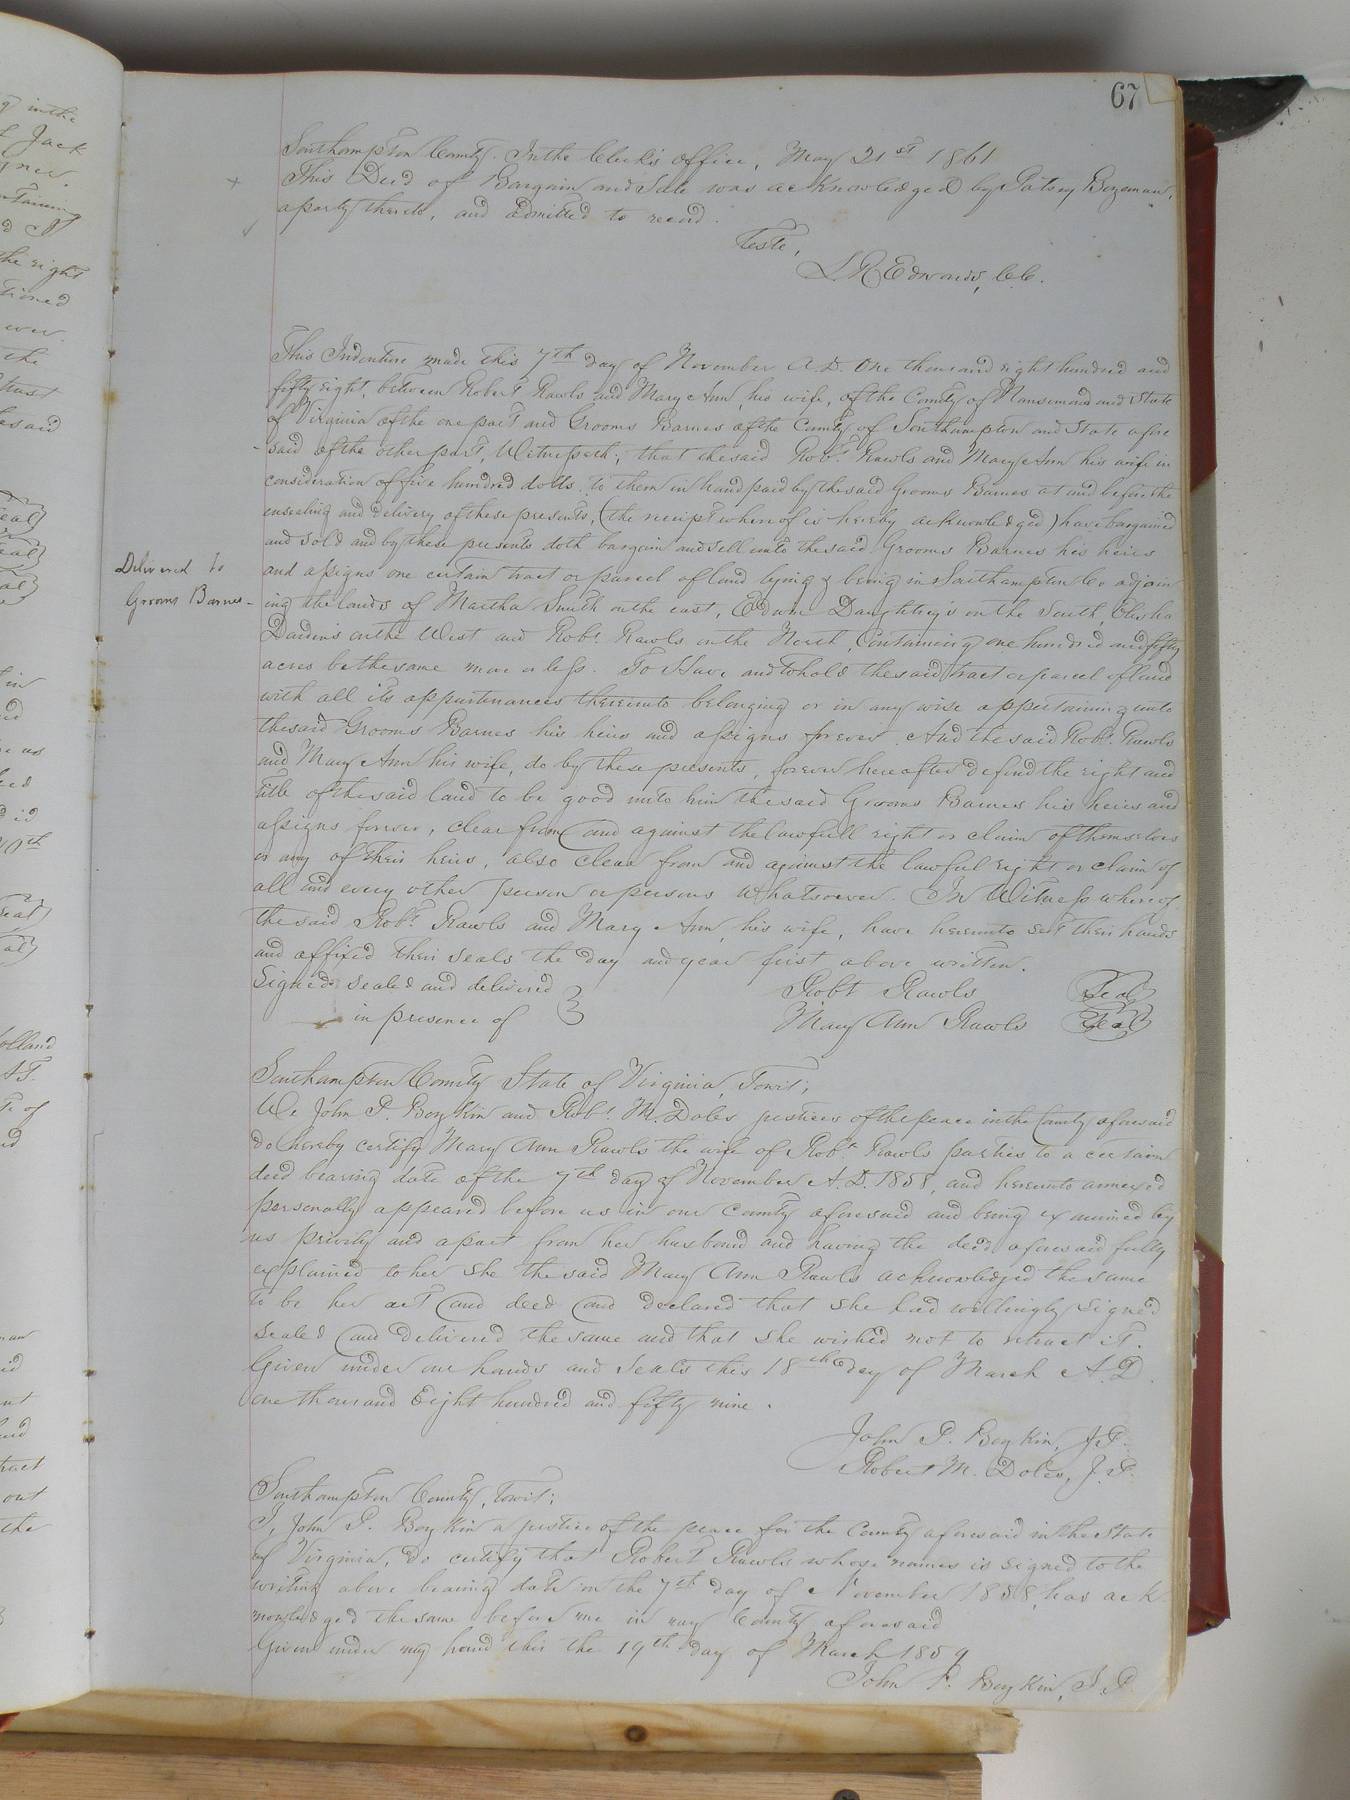 67
Southampton County. In the Clerk's office, May 21st 1861
This Deed of Bargain and Sale was acknowledged by Patsey Bozeman,
a party thereto, and admitted to record.
Teste,
L R Edwards, C.C.
This Indenture made this 7th day of November A.D. One thousand eight hundred and
fifty eight, between Robert Rawls and Mary Ann, his wife, of the County of Nansemond and State
of Virginia of the one part and Grooms Barnes of the County of Southampton and State afore
-said of the other part, Witnesseth; that the said Robt. Rawls and Mary Ann his wife in
consideration of five hundred dolls. to them in hand paid by the said Grooms Barnes at and before the
ensealing and delivery of these presents, (the receipt whereof is hereby acknowledged) have bargained
and sold and by these presents doth bargain and sell unto the said Grooms Barnes his heirs
and assigns one certain tract or parcel of land lying & being in Southampton Co adjoin
ing the lands of Martha Smith on the east, Edwin Daughtrey's on the South, Elisha
Darden's on the West and Robt. Rawls on the North, Containing one hundred and fifty
acres be the same more or less. To Have and to hold the said tract or parcel of land
with all its appurtenances thereunto belonging or in any wise appertaining unto
the said Grooms Barnes his heirs and assigns forever. And the said Robt. Rawls
and Mary Ann his wife, do by these presents, forever hereafter defend the right and
title of the said land to be good unto him the said Grooms Barnes his heirs and
assigns forever, clear from and against the lawfull right or claim of themselves
or any of their heirs, also clear from and against the lawful right or claim of
all and every other person or persons whatsoever. In Witness whereof
the said Robt. Rawls and Mary Ann, his wife, have hereunto set their hands
and affixed their seals the day and year first above written.
Signed sealed and delivered
in presence of
Robt Rawls Seal
Mary Ann Rawls Seal
Delivered to
Grooms Barnes-
Southampton County State of Virginia, Towit;
We John P. Boykin and Robt. M. Doles justices of the peace in the County aforesaid
do hereby certify Mary Ann Rawls the wife of Robt. Rawls parties to a certain
deed bearing date of the 7th day of November A.D. 1858, and hereunto annexed
personally appeared before us in our County aforesaid and being examined by
us privily and apart from her husband and having the deed aforesaid fully
explained to her She the said Mary Ann Rawls acknowledged the same
to be her act and deed and declared that she had willingly signed
sealed and delivered the same and that she wished not to retract it.
Given under our hands and seals this 18th day of March A.D.
one thousand Eight hundred and fifty nine.
John P. Boykin, J.P.
Robert M. Doles, J.P.
Southampton County, Towit;
I, John P. Boykin a justice of the peace for the County aforesaid in the State
of Virginia, do certify that Robert Rawls whose names is signed to the
writing above bearing date on the 7th day of November 1858, has ack
nowledged the same before me in my County aforesaid
Given under my hand this the 19th day of March 1859
John P. Boykin, J.P.